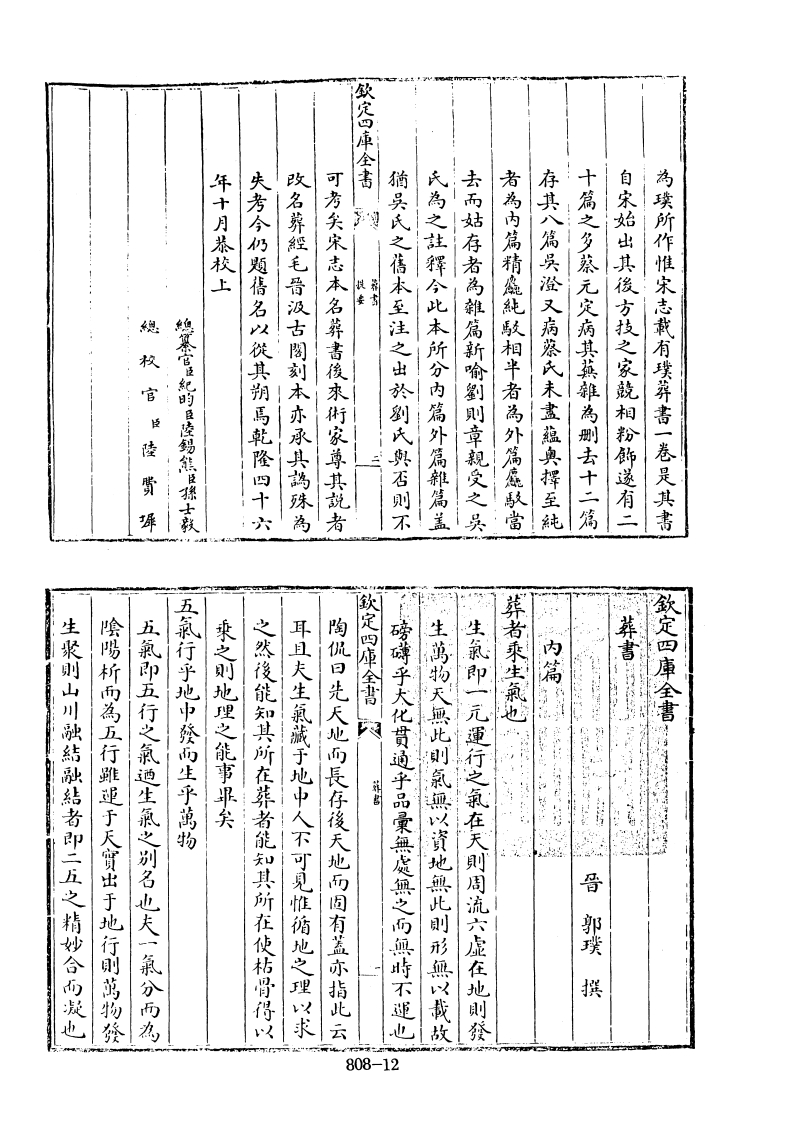 為璞所作惟宋志載有璞葬書一卷是其書
自宋始出其後方技之家競相粉飾遂有二
十篇之多蔡元定病其蕪雜為刪去十二篇
存其八篇吳澄又病蔡氏未盡蘊奧擇至純
者為内篇精麤純駁相半者為外篇麤駁當
去而姑存者為雜篇新喻劉則章親受之吳
氏為之註釋今此本所分内篇外篇雜篇蓋
猶吳氏之舊本至注之出於劉氏與否則不
欽定四庫全書
葬書
提要
二
可考矣宋志本名葬書後來術家尊其說者
改名葬經毛晉汲古閣刻本亦承其譌殊為
失考今仍題舊名以從其朔焉乾隆四十六
年十月恭校上
總纂官臣紀昀臣陸錫熊臣孫士毅
總校官臣陸費墀
欽定四庫全書
葬書
晉 郭璞 撰
内篇
葬者乘生氣也
生氣即一元運行之氣在天則周流六虛在地則發
生萬物天無此則氣無以資地無此則形無以載故
磅礡乎大化貫通乎品彙無處無之而無時不運也
欽定四庫全書
葬書
一
陶侃曰先天地而長存後天地而固有蓋亦指此云
耳且夫生氣藏于地中人不可見惟循地之理以求
之然後能知其所在葬者能知其所在使枯骨得以
乘之則地理之能事畢矣
五氣行乎地中發而生乎萬物
五氣即五行之氣迺生氣之别名也夫一氣分而為
陰陽析而為五行雖運于天實出于地行則萬物發
生聚則山川融結融結者即二五之精妙合而凝也
808-12